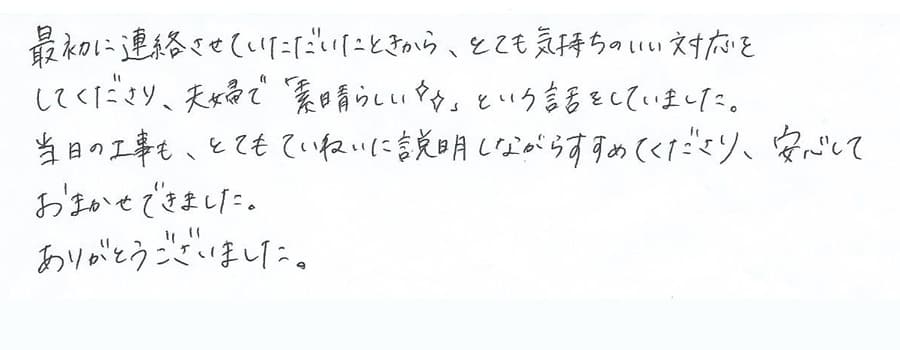 最初に連絡させていただいたときから、とても気持ちのいい対応を
してくださり、夫婦で「素晴らしい✧✧」という話をしていました。
当日の工事も、とてもていねいに説明しながらすすめてくださり、安心して
おまかせできました。
ありがとうございました。